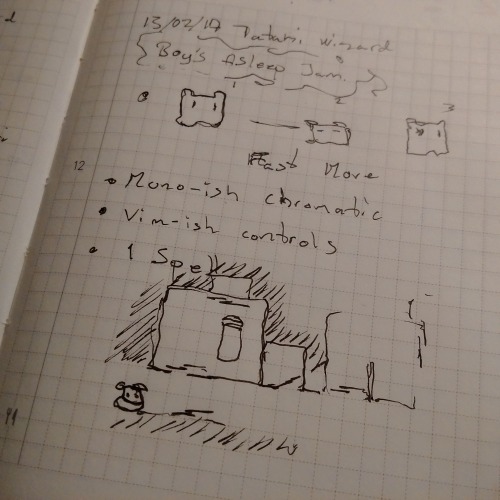 13/02/17 Tatami wizard
Boy's Asleep Jam.
1 2 3
Fast Move
12
• Mono-ish chromatic
• Vim-ish controls
• 1 Spell